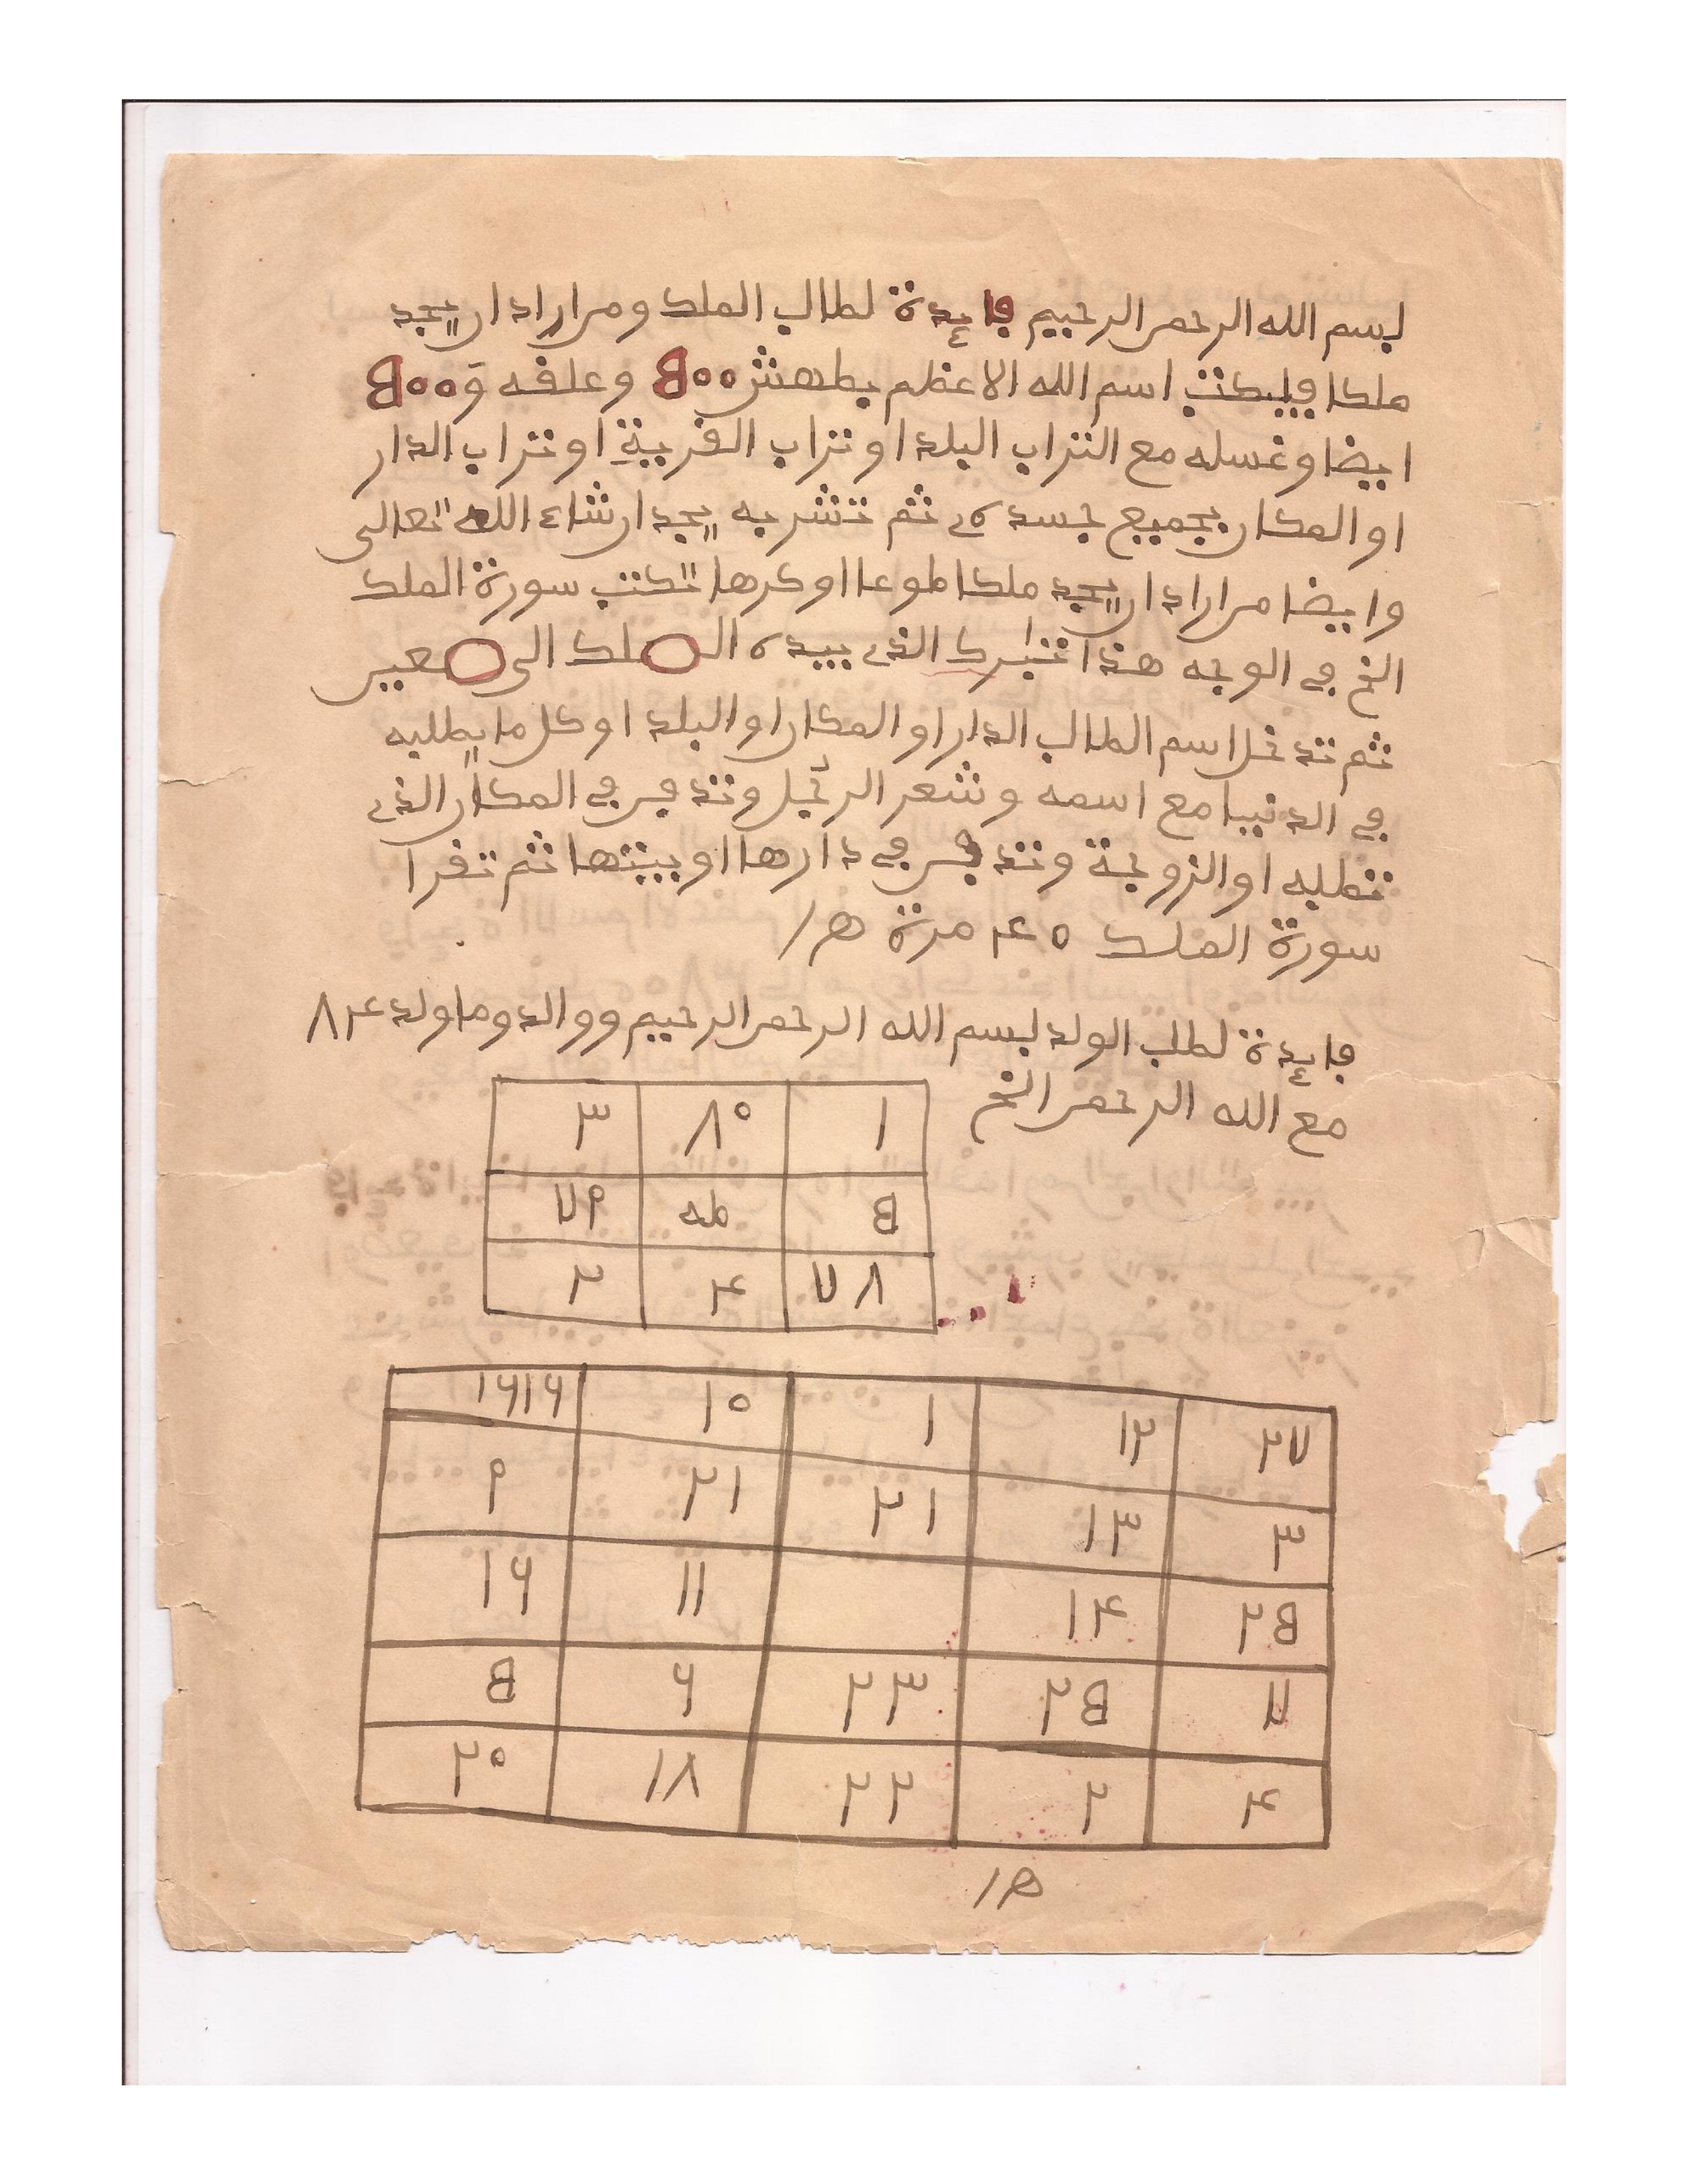 بسم الله الرحمن الرحيم فايدة لطالب الملك ومن اراد ان يجد
ملكا فليكتب اسم الله الاعظم بطهش ٥٠٠ وعلفه و ٥٠٠
ايضا وغسله مع التراب البلد او تراب القرية او تراب الدار
او المكان بجميع جسده ثم تشربه يجد ان شاء الله تعالى
وايضا من اراد ان يجد ملكا طوعا او كرها تكتب سورة الملك
الخ في الوجه هذا تبرك الذي بيده الملك الى معين
ثم تدخل اسم الطالب الدار او المكان او البلد او كل ما يطلبه
في الدنيا مع اسمه وشعر الرجل وتدفن في المكان الذي
تطلبه او الزوجة وتدفن في دارها او بيتها ثم تقرا
سورة الملك ٤٠ مرة ه/
فايدة لطلب الولد بسم الله الرحمن الرحيم ووالد وما ولد ٤٨
مع الله الرحمن الخ
١ ٨٠ ٣
٥ طه ٧٩
٧٨ ٤ ٢
٢٧ ١٢ ١ ١٠ ١٦١٦
٣ ١٣ ٢١ ٢١ ٩
٢٥ ١٤ ١١ ١٦
٧ ٢٥ ٢٣ ٦ ٥
٤ ٢ ٢٢ ١٨ ٢٠
ه/